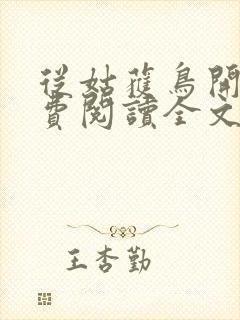 從姑蘓鳥開
費閱讀全文
王杏勤